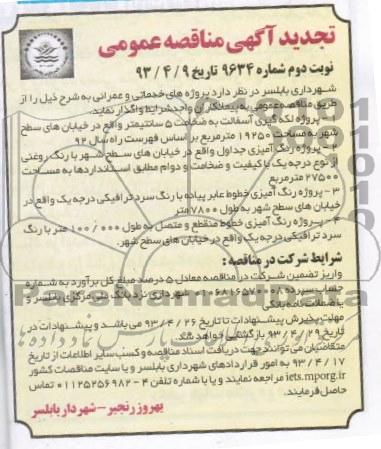 تجدید آگهی مناقصه عمومی
نوبت دوم شماره ۹۶۳۴ تاریخ ۹ / ۴ / ۹۳
شهرداری بابلسر در نظر دارد پروژه های خدماتی و عمرانی به شرح ذیل را از
طریق مناقصه عمومی به پیمانکاران واجد شرایط واگذار نماید.
۱ - پروژه لکه گیری آسفالت به ضخامت ۵ سانتیمتر واقع در خیابان های سطح
شهر به مساحت ۱۹۲۵۰ مترمربع بر اساس فهرست راه سال ۹۲
۲ - پروژه رنگ آمیزی جداول واقع در خیابان های سطح شهر با رنگ روغنی
از نوع درجه یک با کیفیت و ضخامت و دوام مطابق استانداردها به مساحت
۲۷۵۰۰ مترمربع
۳ - پروژه رنگ آمیزی خطوط عابر پیاده با رنگ سرد ترافیکی درجه یک واقع در
خیابان های سطح شهر به طول ۷۸۰۰ متر
۴ - پروژه رنگ آمیزی خطوط منقطع و متصل به طول ۱۰۰/۰۰۰ متر با رنگ
سرد ترافیکی درجه یک واقع در خیابان های سطح شهر.
شرایط شرکت در مناقصه :
واریز تضمین شرکت در مناقصه معادل ۵ درصد مبلغ کل برآورد به شماره
حساب سپرده شهرداری نزد بانک ملی مرکزی بابلسر و
یا ضمانت نامه بانکی
مهلت پذیرش پیشنهادات تا تاریخ ۹۳/۴/۲۶ می باشد و پیشنهادات در
تاریخ ۹۳/۴/۲۹ بازگشایی خواهد شد.
متقاضیان می توانند جهت دریافت اسناد مناقصه و کسب سایر اطلاعات از تاریخ
۹۳/۴/۱۷ به امور قراردادهای شهرداری بابلسر و یا سایت مناقصات کشور
iets.mporg.ir مراجعه نمایند و یا با شماره تلفن ۴ - ۰۱۱۲۵۲۵۶۹۸۲ تماس
حاصل فرمایند.
بهروز رنجبر - شهردار بابلسر